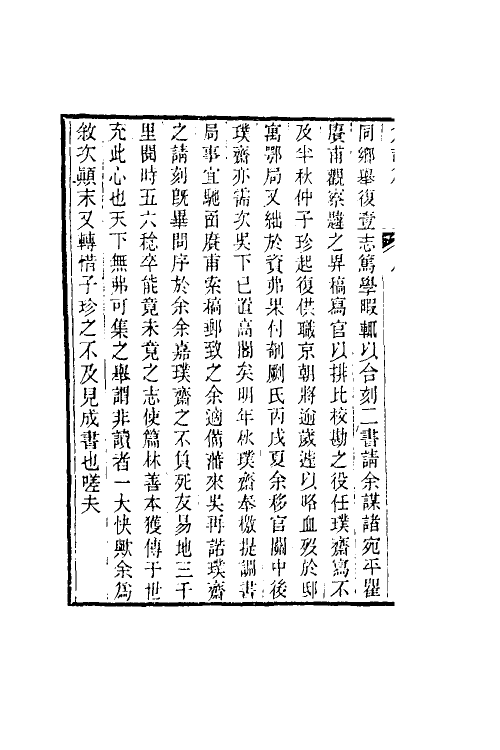 同鄉舉復壹志篤學暇輒以合刻二書請余謀諸宛平瞿
賡甫觀察韙之畀稿寫官以排比校勘之役任璞齋寫不
及半秋仲子珍起復供職京朝將逾歲遽以咯血歿於邸
寓鄂局又絀於資弗果付剞劂氏丙戌夏余移官關中後
璞齋亦需次吳下已置高閣矣明年秋璞齋奉檄提調書
局事宜馳函賡甫索稿郵致之余適備藩來吳再諧璞齋
之請刻既畢問序於余余嘉璞齋之不負死友易地三千
里閱時五六稔卒能竟未竟之志使篇林善本獲傳于世
充此心也天下無弗可集之舉謂非讀者一大快歟余爲
敘次顛末又轉惜子珍之不及見成書也嗟夫